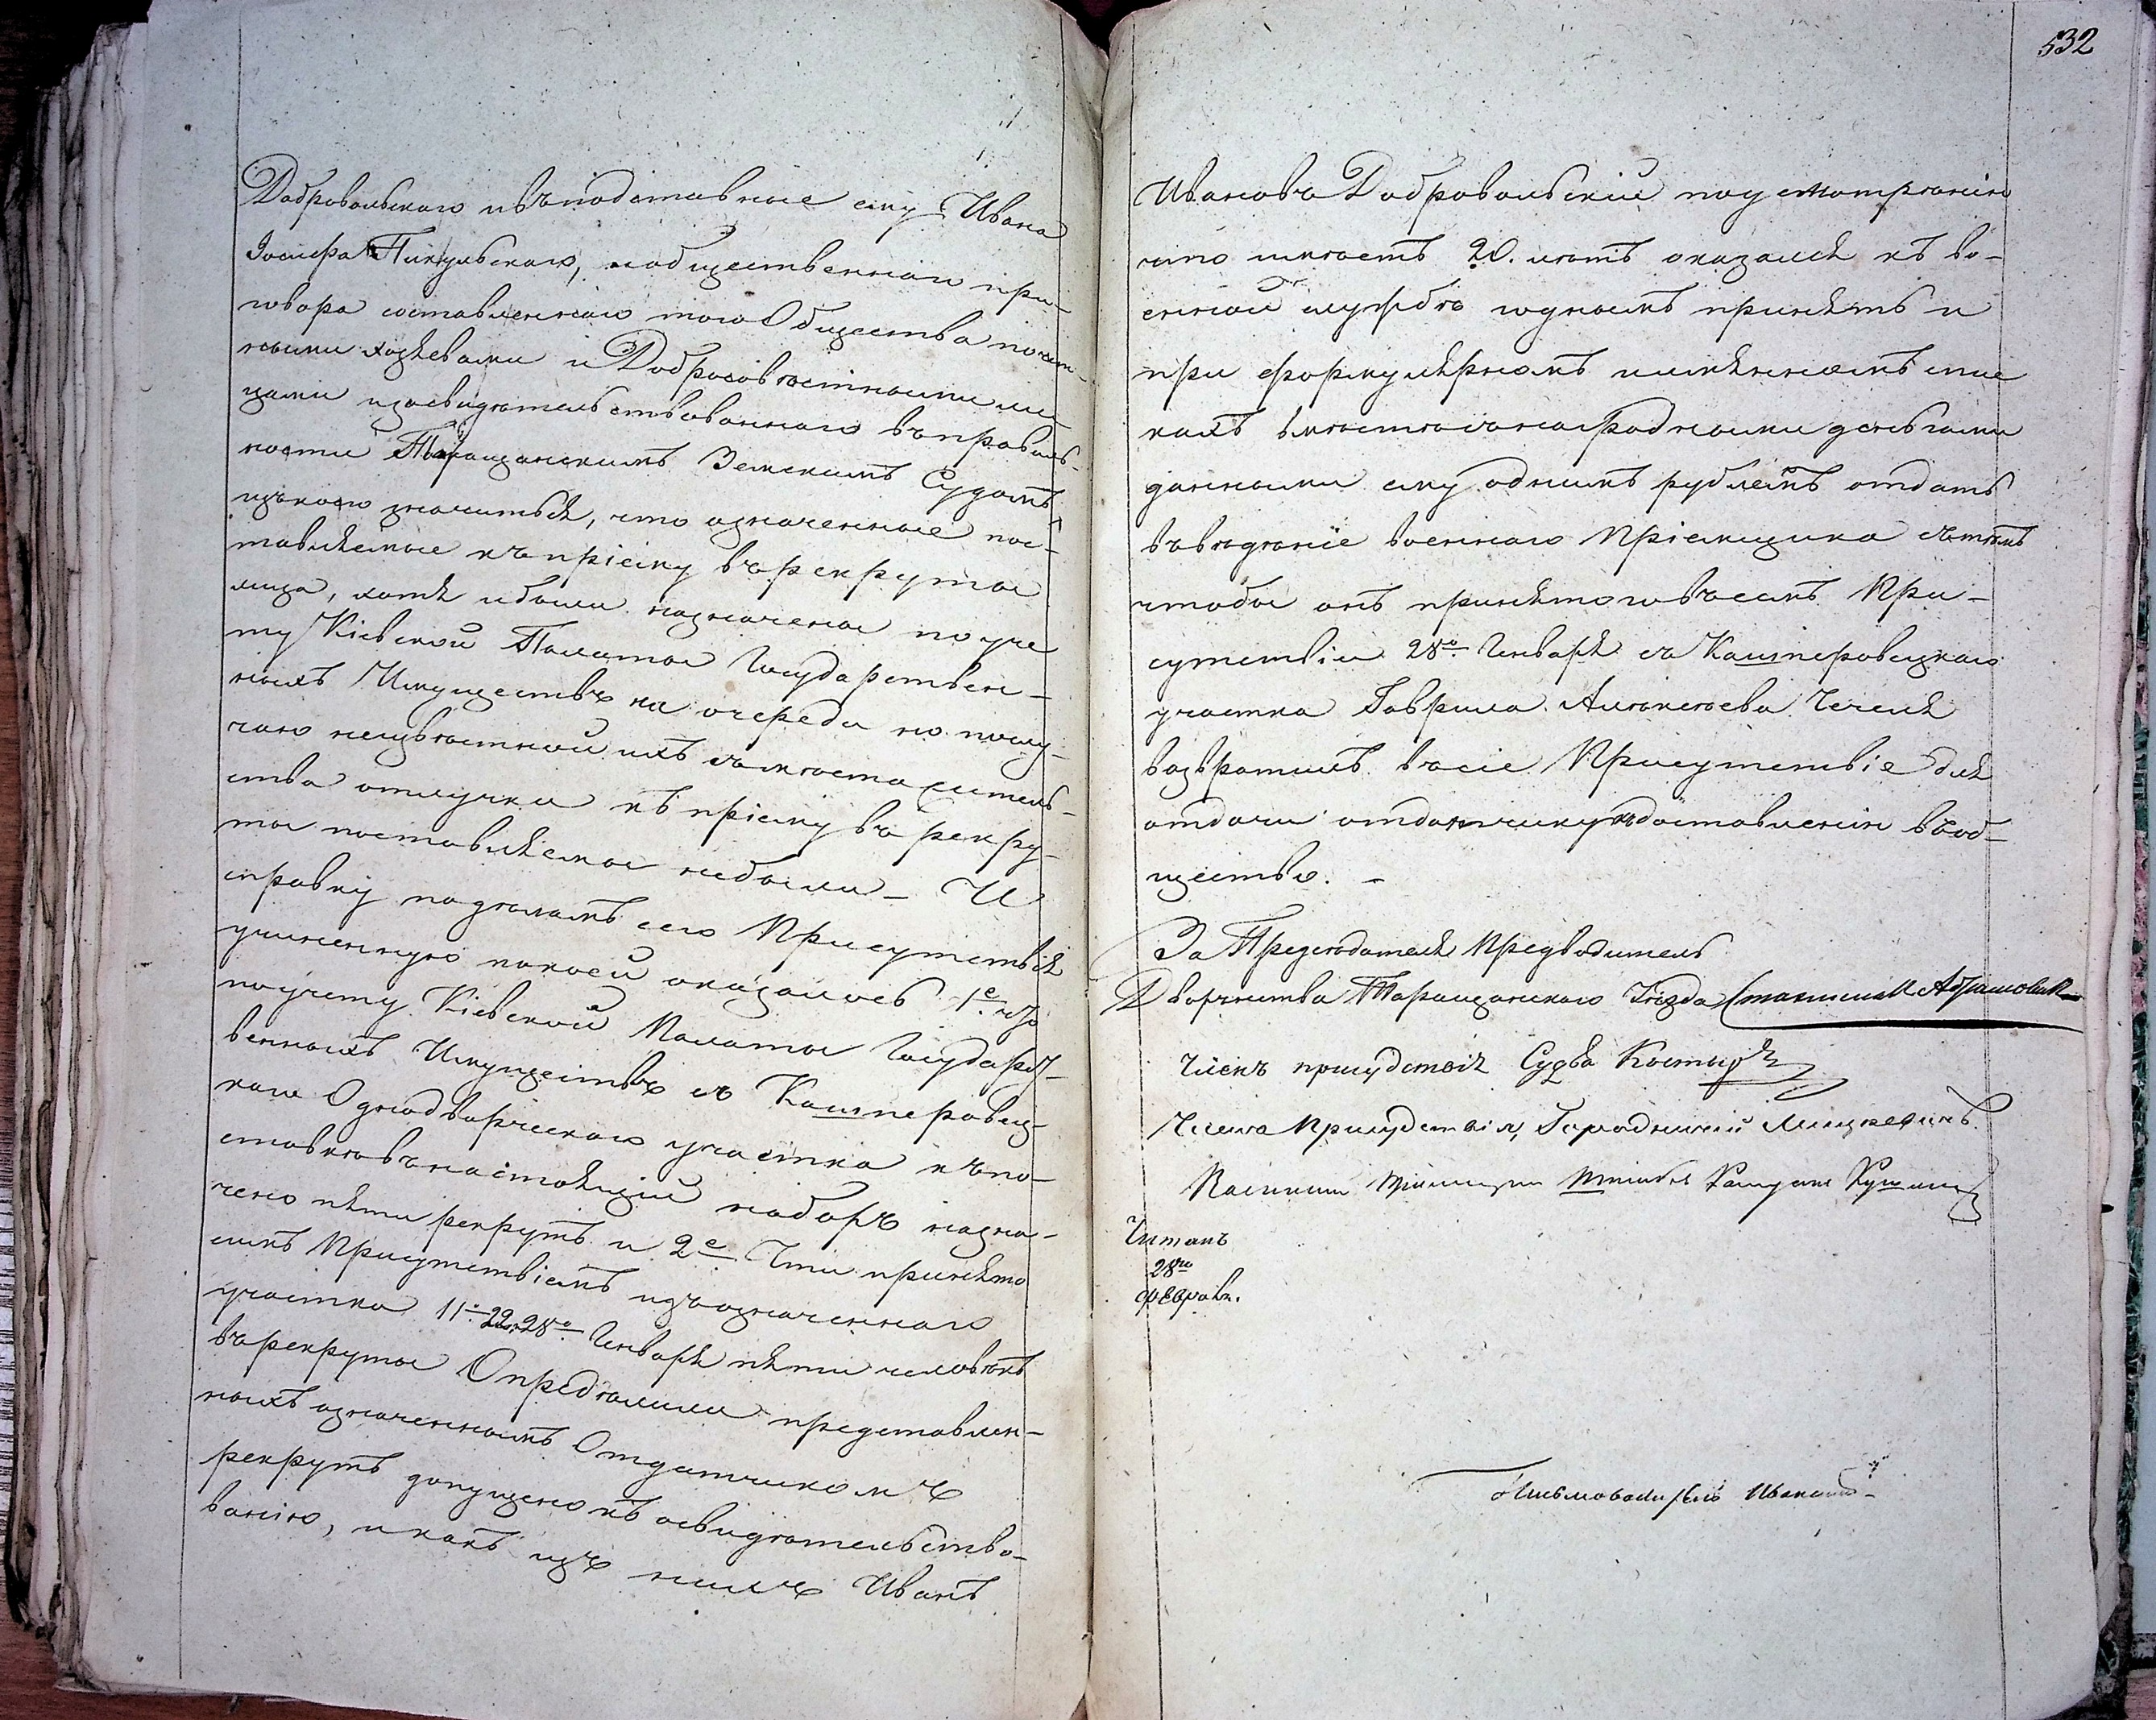 Добровольскаго и въ подставные ему Ивана
Іосифа Пикульскаго, и общественнаго при-
говора составленнаго того Общества почет-
ными хозяевами и Добросовѣстными ли
цами и засвидѣтельствованнаго въ правиль-
ности Таращанскимъ Земскимъ Судомъ
изъ коего значиться, что означенные пос-
тавляемые къ пріему въ рекруты
лица, хотя и были назначены по уче
ту Кіевской Палаты Государствен-
ныхъ Имуществъ на очереди но по слу-
чаю неизвѣстной ихъ съ мѣста житель-
ства отлучки къ пріему въ рекру-
ты поставляемы не были – И
справку по дѣламъ сего Присутствія
учиненную по коей оказалось 1е. что
по учету Кіевской Палаты Государст-
венныхъ Имуществъ съ Кашперовец-
каго Однодворческаго участка къ по-
ставкѣ въ настоящій наборъ назна-
чено пяти рекрутъ и 2е. Что принято
симъ Присутствіемъ изъ означеннаго
участка 11. 22. и 28го Генваря пяти человѣкъ
въ рекруты Опредѣлили представлен-
ныхъ означеннымъ Отдатчикомъ
рекрутъ допущено къ освидѣтельство-
ванію, и какъ изъ нихъ Иванъ
532
Ивановъ Добровольскій по усмотренію
что имѣетъ 20. лѣтъ оказался къ во-
енной службѣ годнымъ принять и
при формулярномъ имянномъ спис
кахъ вмѣстѣ съ наградными деньгами
данными ему однимъ рублемъ отдать
въ вѣденіе военнаго Пріемщика съ тѣмъ
чтобы онъ принятого въ семъ При-
сутствіи 28го Генваря съ Кашперовецкаго
участка Гаврила Алексѣева Чечеля
возвратилъ въ сіе Присутствіе для
отдачи отдатчику къ доставленію въ об-
щество. –
За Предсѣдателя Предводитель
Дворянства Таращанскаго Уѣзда
Членъ присудствія Судья
Члена Присудствія, Городничій
Военный Пріемщикъ Штабсъ Капитанъ
Читалъ
28го
Февраля.
Письмоводитель